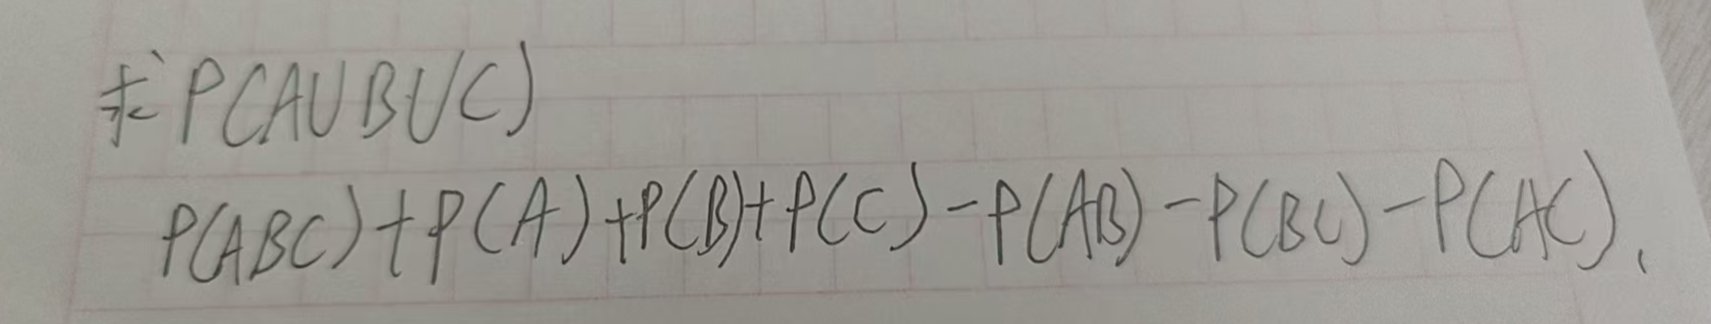 求P(AUBUC)
P(ABC)+P(A)+P(B)+P(C)-P(AB)-P(BC)-P(AC).